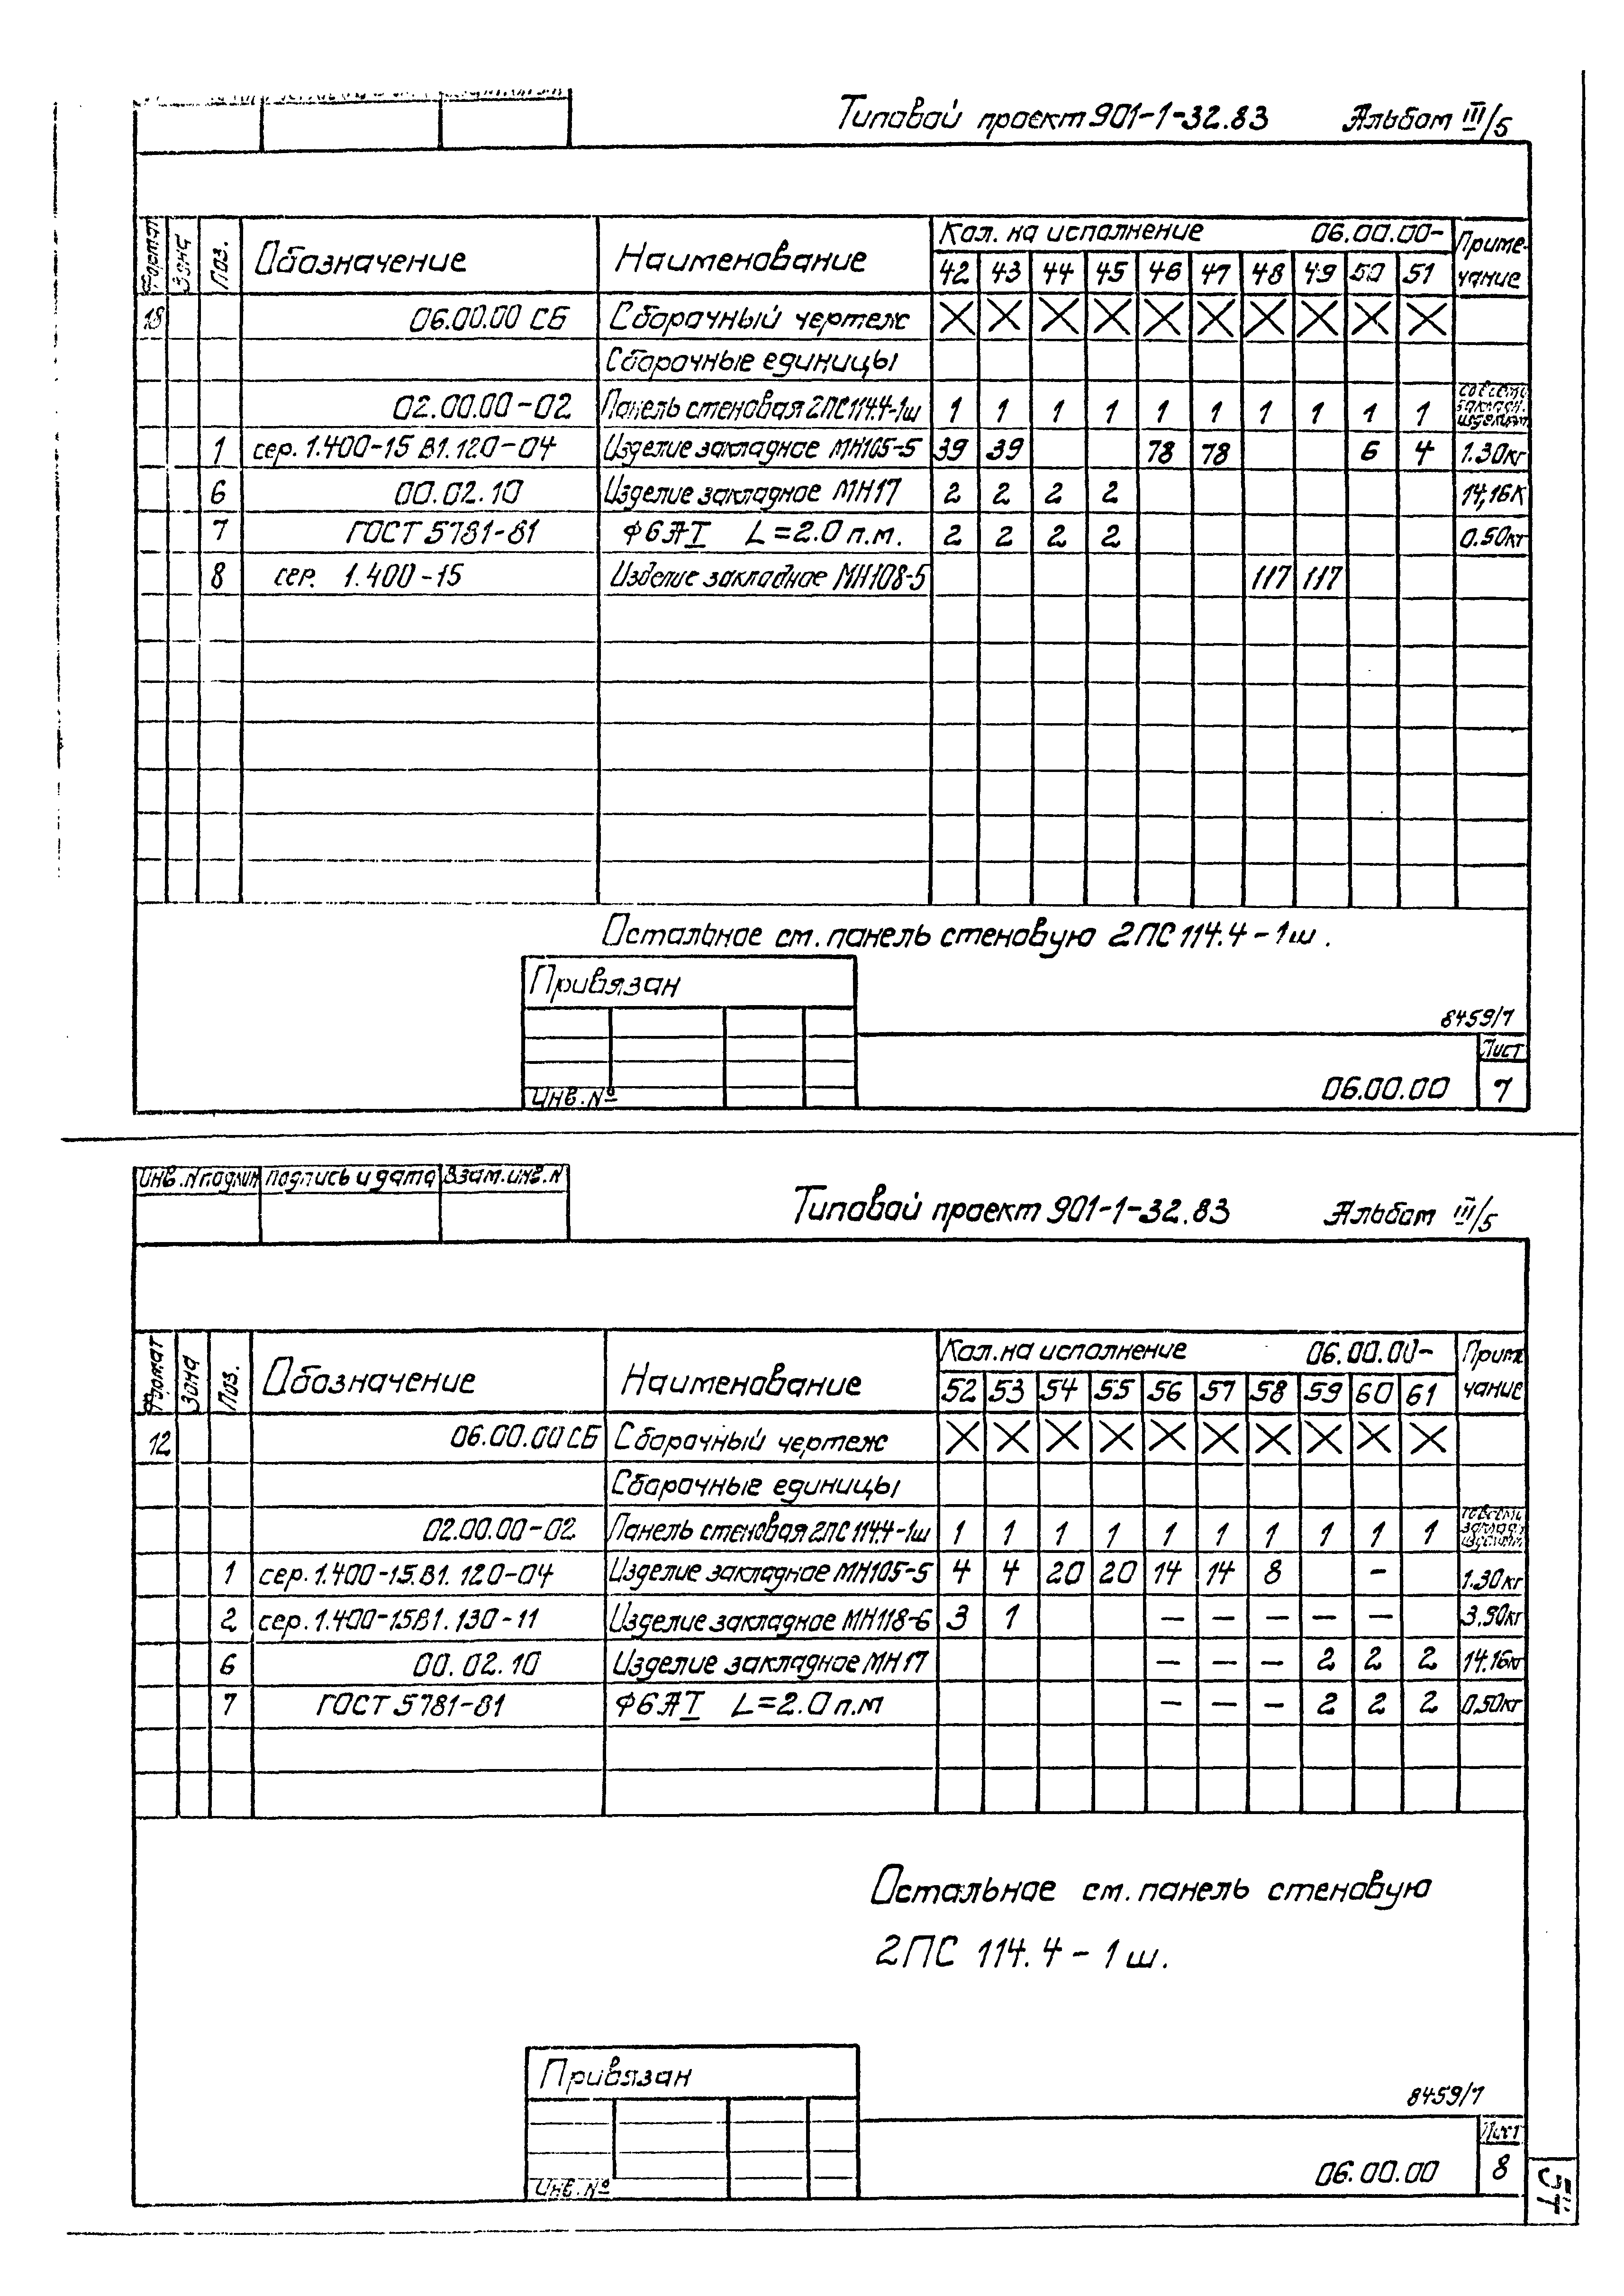 Типовой проект 901-1-32.83 Альбом III/5
Формат Зона Поз. Обозначение Наименование Кол. на исполнение 06.00.00- Приме-
42 43 44 45 46 47 48 49 50 51 чание
18 06.00.00 СБ Сборочный чертеж
Сборочные единицы
02.00.00-02 Панель стеновая 2ПС114.4-1ш 1 1 1 1 1 1 1 1 1 1
1 сер. 1.400-15 В1.120-04 Изделие закладное МН105-5 39 39 78 78 6 4 1.30кг
6 00.02.10 Изделие закладное МН17 2 2 2 2 14,16К
7 ГОСТ 5781-81 Ф6АI L=2.0 п.м. 2 2 2 2 0.50кг
8 сер. 1.400-15 Изделие закладное МН108-5 117 117
Остальное см. панель стеновую 2ПС 114.4-1ш.
Привязан
8459/7
Лист
Инв. №
06.00.00 7
Инв. № подлин Подпись и дата Взам. инв. N
Типовой проект 901-1-32.83 Альбом III/5
Формат Зона Поз. Обозначение Наименование Кол. на исполнение 06.00.00- Приме
52 53 54 55 56 57 58 59 60 61 чание
12 06.00.00 СБ Сборочный чертеж
Сборочные единицы
02.00.00-02 Панель стеновая 2ПС 114.4-1ш 1 1 1 1 1 1 1 1 1 1
1 сер. 1.400-15.В1.120-04 Изделие закладное МН105-5 4 4 20 20 14 14 8 - 1.30кг
2 сер. 1.400-15В1.130-11 Изделие закладное МН118-6 3 1 - - - - - 3.90кг
6 00.02.10 Изделие закладное МН17 - - - 2 2 2 14.16кг
7 ГОСТ 5781-81 Ф6АI L=2.0 п.м - - - 2 2 2 0.50кг
Остальное см. панель стеновую
2ПС 114.4-1ш.
Привязан
8459/7
Лист
Инв. №
06.00.00 8